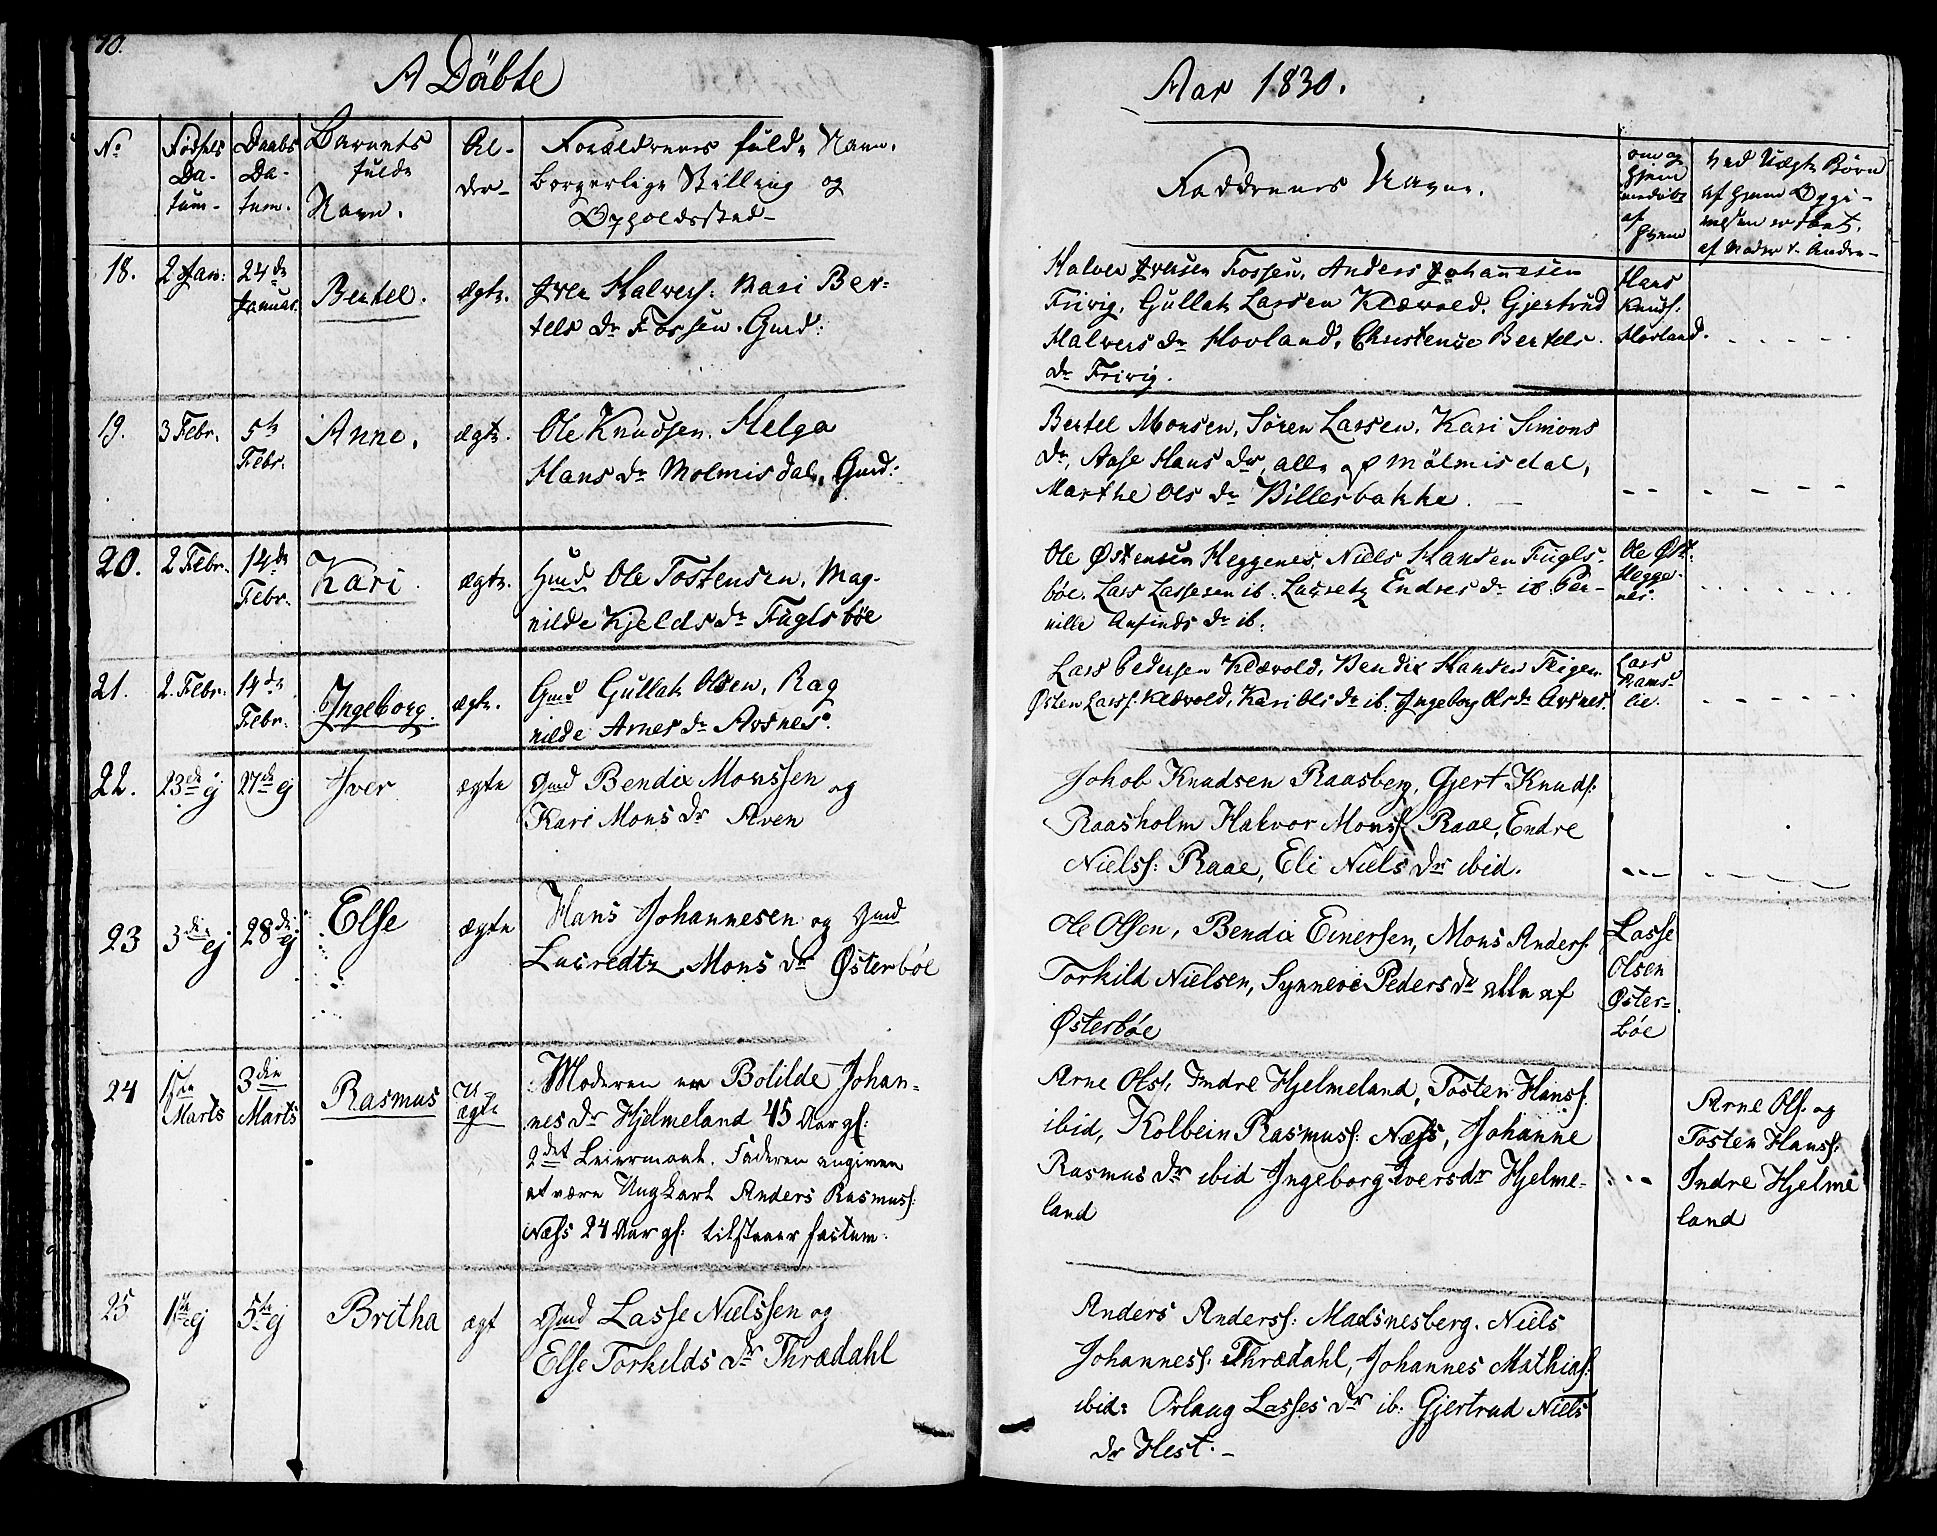 70.
A Döbte
Aar 1830.
No Fødsels Da-tum- Daabs Da-tum. Barnets fulde Navn. Al-der- Forældrenes fulde Navn, borgerlige Stilling og Opholdssted-
Faddernes Navne.
om og hjemmedøbt af hvem
ved Uægte Børn af hvem Opgivelsen er skeet, af Moder v. Andre-
18. 2 Jan: 24de Januar. Bertel. ægte. Iver Halvers: Kari Ber-
tels Dr Fossen. Gmd:
Halvor Iversen Fossen, Anders Johannesen
Frivig, Gullak Larsen Klævold. Gjertrud
Halvers Dr Hovland, Christense Bertels
Dr Frivig.
Hans
Knuds:
Hovland.
19. 3 Febr. 5te Febr. Anne. ægte. Ole Knudsen. Helga
Hans Dr Molmisdal, Gmd:
Bertel Monsen, Sören Larsen, Kari Simons
Dr, Aase Hans Dr, alle af Mölmisdal,
Marthe Ols Dr Billesbakke.
20. 2 Febr. 14de Febr. Kari. ægte. Gmd Ole Tostensen, Mag-
nilde Kjelds Dr Fuglsböe
Ole Østensen Heggenes, Niels Hansen Fugls-
böe. Lars Lassesen ib. Lucretz Endres Dr ib. Per-
nille Anfinds Dr ib.
Ole Øst:
Hegge-
nes.
21. 2. Febr. 14de Febr. Ingeborg. ægte. Gmd Gullak Olsen, Rag
nilde Arnes Dr Avsnes.
Lars Pedersen Klævold, Bendix Hansen
Østen Larss: Klævold, Kari Ols Dr ib. Ingeborg Ols Dr Avsnes.
Lars
Rams-
lie.
22. 23de ej 27de ej Iver ægte Gmd Bendix Monssen og
Kari Mons Dr Aven
Jakob Knudsen Raasberg, Gjert Knuds:
Raasholm Halvor Monss: Raae, Endre
Nielss: Raae, Eli Niels Dr ibid.
23 3die ej 28de ej Else ægte Hans Johannesen og Gmd
Lucredtz Mons Dr Østerbøe
Ole Olsen, Bendix Einersen, Mons Anders:
Torkild Nielsen, Synneve Peders Dr alle af
Østerbøe
Lasse
Olsen
Øster-
bøe
24 1ste Marts 3die Marts Rasmus U-ægte Moderen er Bolilde Johan-
nes Dr Hjelmeland 45 Aar gl:
2det Leiermaal. Faderen angiven
at være Ungkarl Anders Rasmuss:
Næss 24 Aar gl: tilstaaer factum.
Arne Ols: Indre Hjelmeland, Tosten Hans:
ibid, Kolbein Rasmuss: Næss, Johanne
Rasmus Dr ibid Ingeborg Ivers Dr Hjelme-
land
Arne Ols: og
Tosten Hans:
Indre Hjelme
land
25 1ste ej 5te ej Britha ægt Gmd Lasse Nielssen og
Else Torkilds Dr Thrædahl
Anders Anderss: Madsnesberg. Niels
Johanness: Thrædahl, Johannes Mathias:
ibid: Orlaug Lasses Dr ib: Gjertrud Niels
Dr Hest.